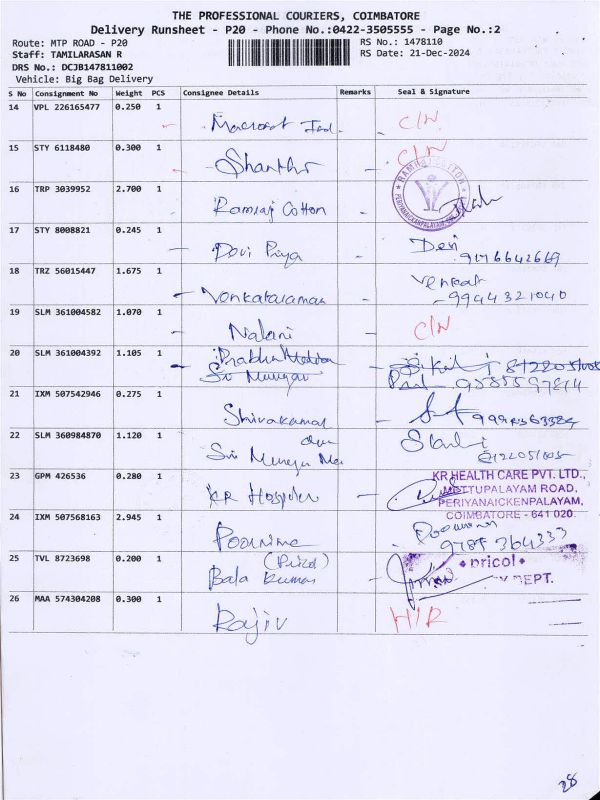 THE PROFESSIONAL COURIERS, COIMBATORE
Delivery Runsheet - P20 - Phone No.:0422-3505555 - Page No.:2
Route: MTP ROAD - P20
RS No.: 1478110
Staff: TAMILARASAN R
RS Date: 21-Dec-2024
DRS No.: DCJB147811002
Vehicle: Big Bag Delivery
S No Consignment No Weight PCS Consignee Details Remarks Seal & Signature
14 VPL 226165477 0.250 1
C/N
15 STY 6118480 0.300 1
Shanthi
C/N
16 TRP 3039952 2.700 1
Ramraj Cotton
PERIYANAICKENPALAYAM
17 STY 8008821 0.245 1
Devi Priya
Devi
9176642669
18 TRZ 56015447 1.675 1
Venkataraman
Venkat
9944321040
19 SLM 361004582 1.070 1
Nalani
C/N
20 SLM 361004392 1.105 1
Sri Murugan
21 IXM 507542946 0.275 1
Shivakamal
22 SLM 360984870 1.120 1
Sri Murugan
23 GPM 426536 0.280 1
KR Hospital
KR HEALTH CARE PVT. LTD.,
METTUPALAYAM ROAD,
PERIYANAICKENPALAYAM,
COIMBATORE - 641 020
24 IXM 507568163 2.945 1
Poornima
9787 364333
25 TVL 8723698 0.200 1
(Pricol)
Bala Kumar
pricol
DEPT.
26 MAA 574304208 0.300 1
Rajiv
H/R
28